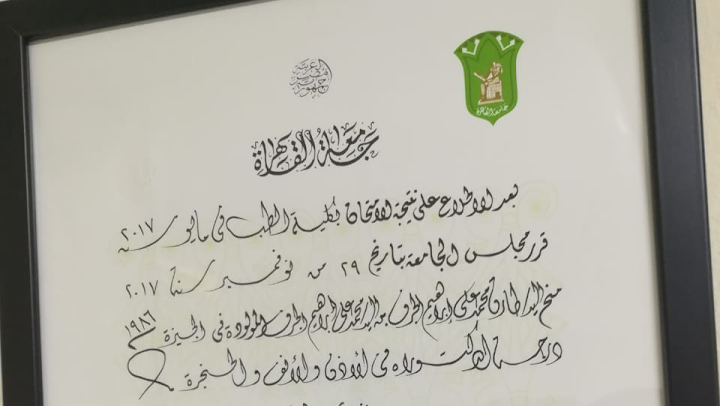 جمهورية مصر العربية
جامعة القاهرة
جامعة القاهرة
بعد الاطلاع على نتيجة الامتحان بكلية الطب في مايو سنة ٢٠١٧
قرر مجلس الجامعة بتاريخ ٢٩ من نوفمبر سنة ٢٠١٧
منح السيد طارق محمد على ابراهيم الجرف بن السيد محمد على ابراهيم الجرف المولود في الجيزة ١٩٨٦
درجة الدكتوراه في الأذن والأنف والحنجرة